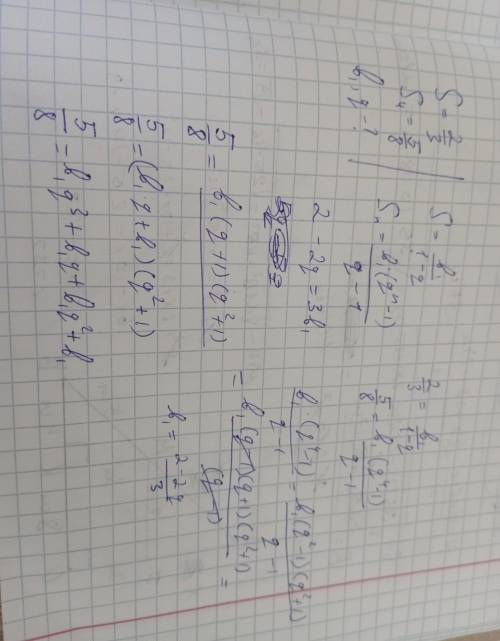 S = 2/3
S₄ = 5/8
b₁, q - ?
S = b₁/(1-q)
Sₙ = b₁(qⁿ-1)/(q-1)
2/3 = b₁/(1-q)
5/8 = b₁(q⁴-1)/(q-1)
2 - 2q = 3b₁
b₁(q⁴-1)/(q-1) = b₁(q²-1)(q²+1)/(q-1)
= b₁(q-1)(q+1)(q²+1)/(q-1) =
5/8 = b₁(q+1)(q²+1)
b₁ = (2-2q)/3
5/8 = (b₁q+b₁)(q²+1)
5/8 = b₁q³+b₁q+b₁q²+b₁